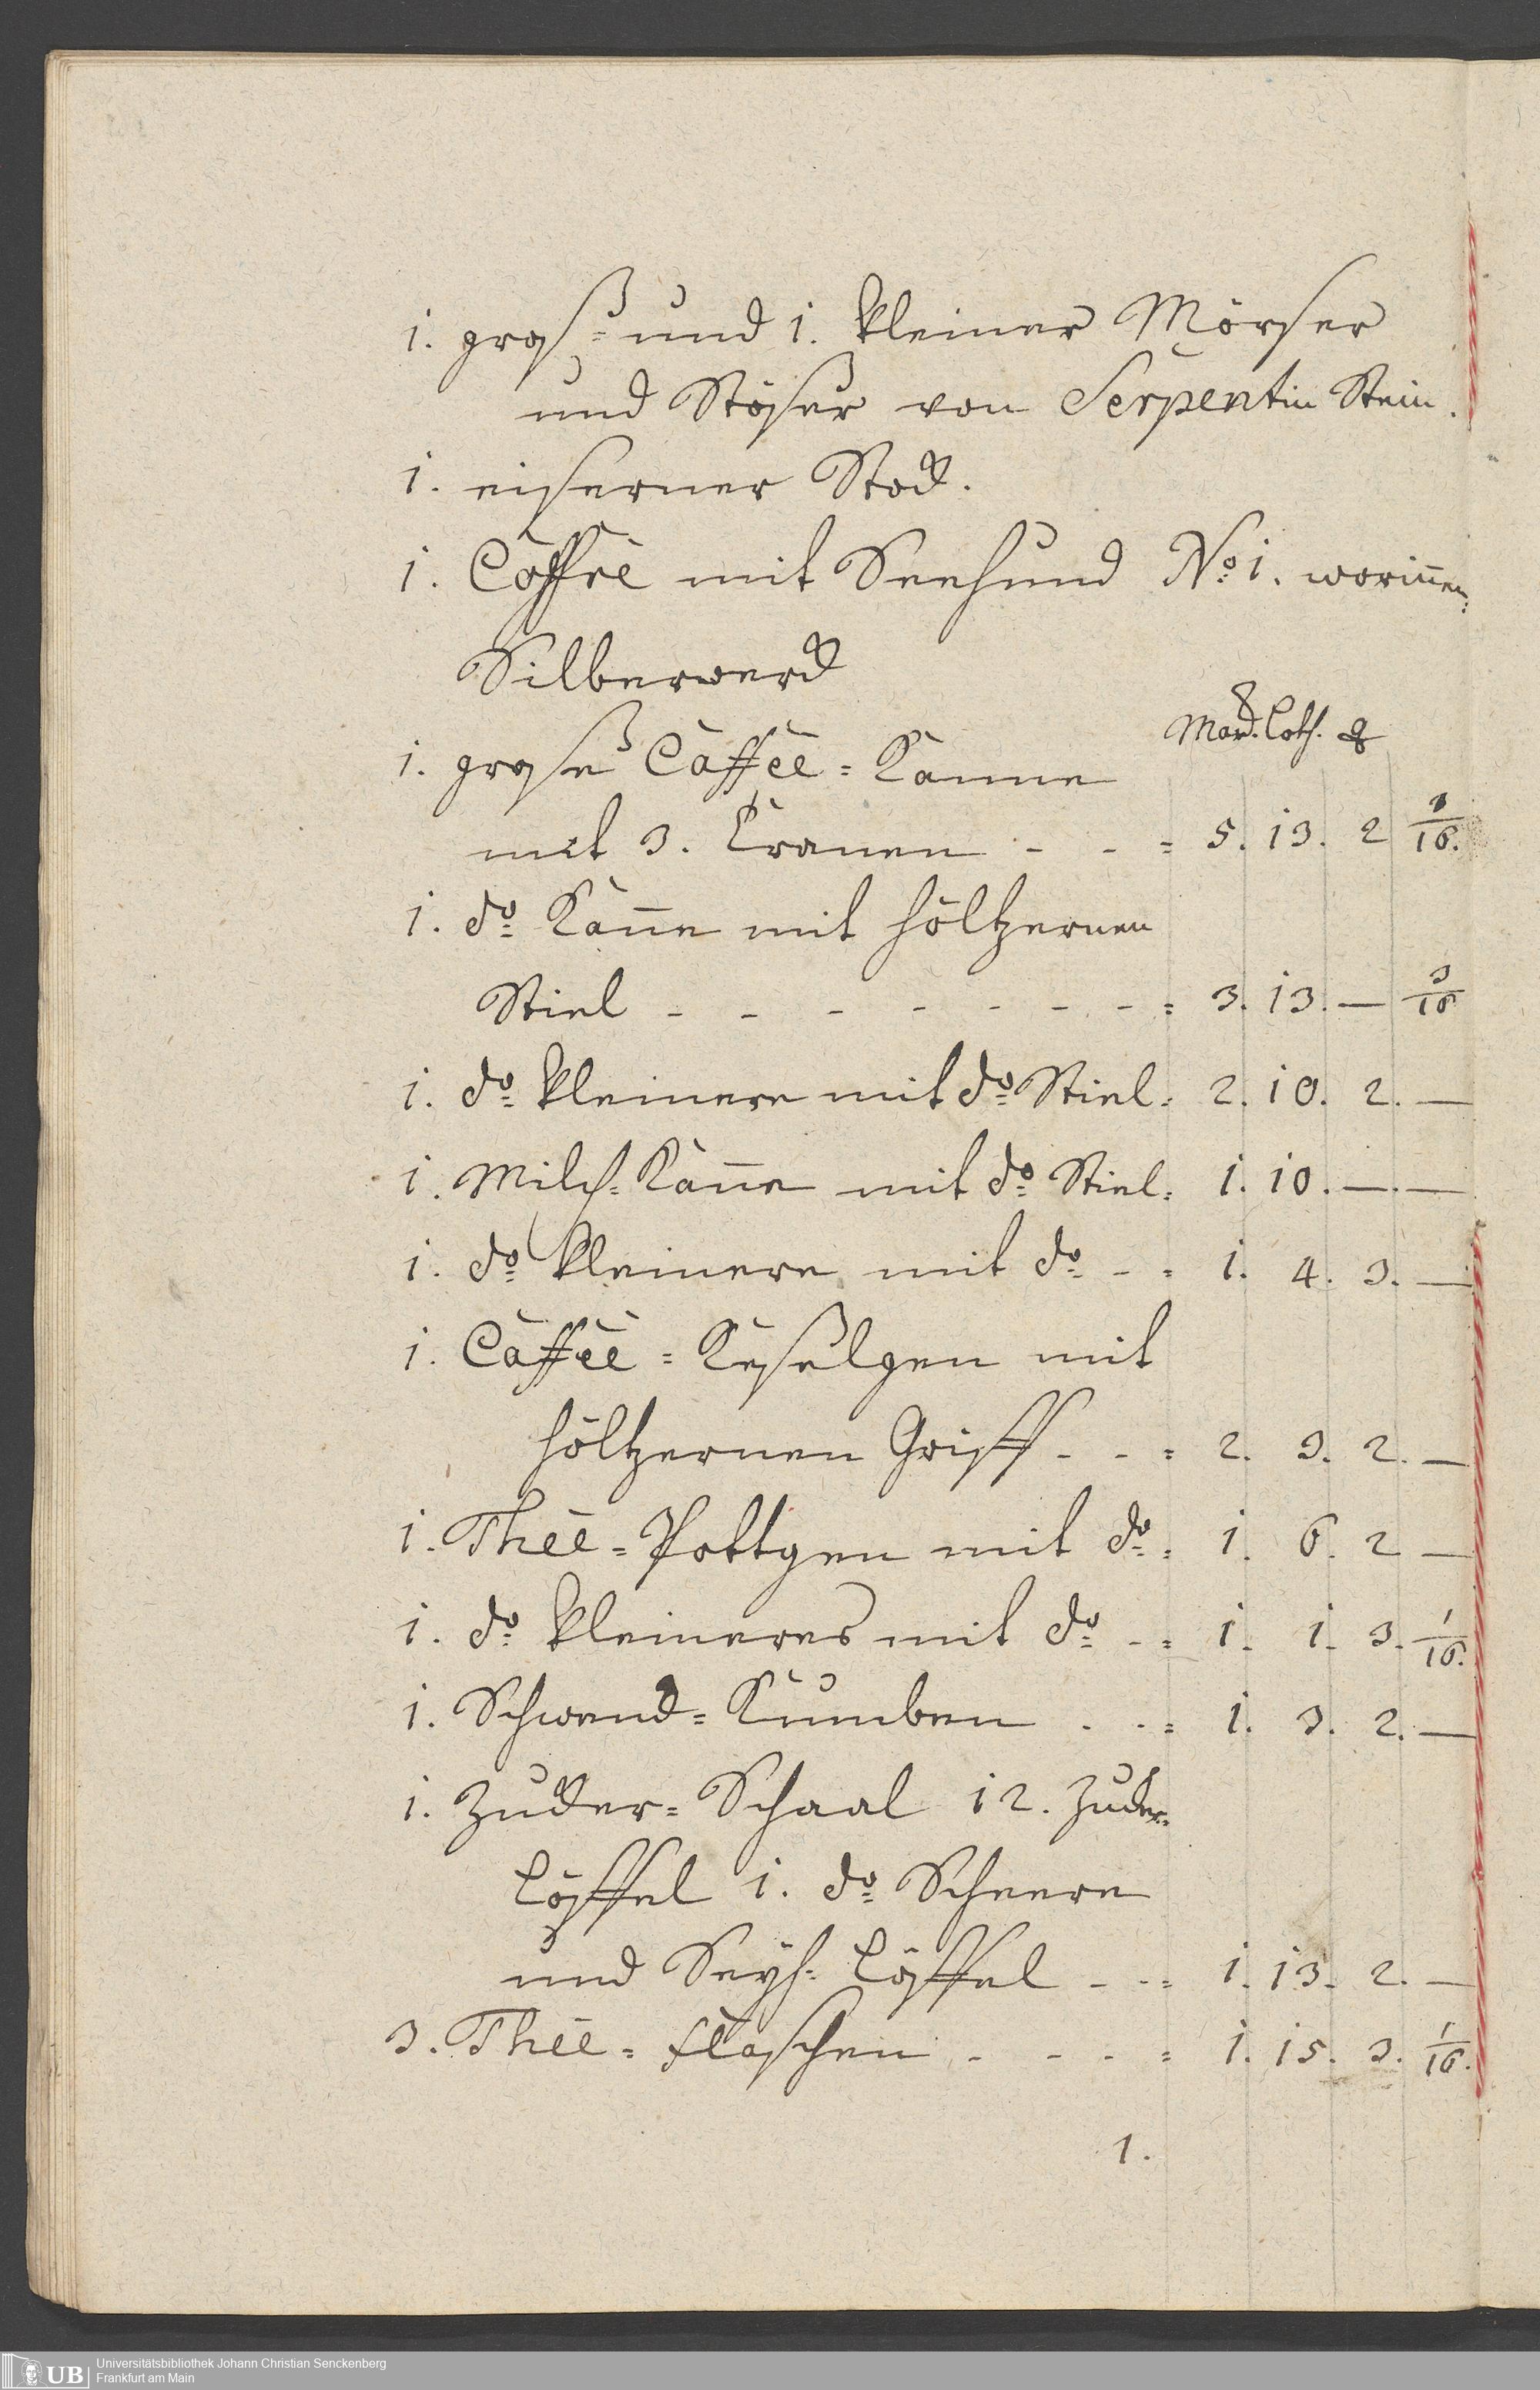 1. groß- und 1. kleiner Mörser
und Stößer von Serpentin Stein.
1. eiserner Stock.
1. Coffrè mit Seehund No: 1. worinnen:
Silberwerck
Marck. Loth. q
1. große Caffée=Kanne
mit 3. Cranen - - = 5. 13. 2 1/16.
1. do: Kanne mit höltzernen
Stiel - - - - - - - = 3. 13. — 3/16
1. do: kleinere mit do: Stiel = 2. 10. 2. —
1. Milch=Kanne mit do: Stiel = 1. 10. —. —
1. do: kleinere mit do: - = 1. 4. 3. —
1. Caffée=Keßelgen mit
höltzernen Griff - - = 2. 3. 2. —
1. Thée=Pottgen mit do: = 1. 6. 2 —
1. do: kleineres mit do: - = 1. 1. 3. 1/16.
1. Schwenck=Kumben - - = 1. 3. 2. —
1. Zucker=Schaal 12. Zucker=
Löffel 1. do: Scheere
und Seyh=Löffel - - = 1. 13. 2. —
3. Thée=Flaschen - - - = 1. 15. 3. 1/16.
1.
UB Universitätsbibliothek Johann Christian Senckenberg
Frankfurt am Main